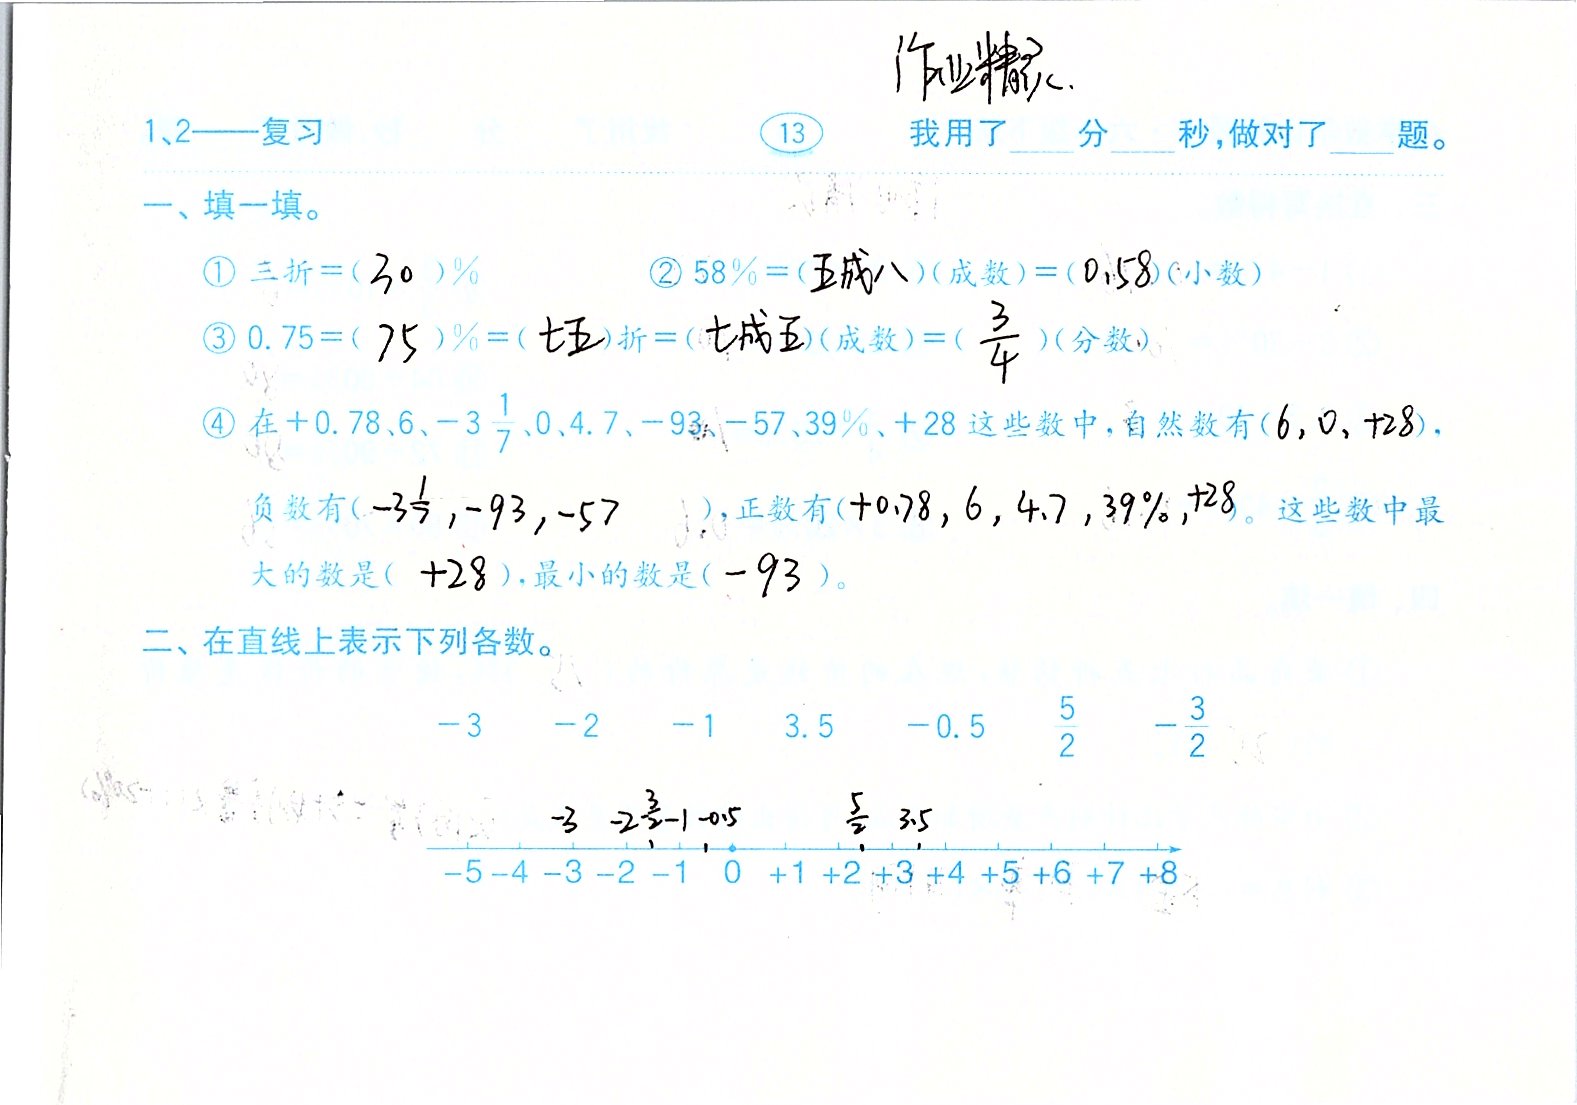 作业精灵.
1、2——复习 13 我用了____分____秒,做对了____题。
一、填一填。
① 三折=(30)% ② 58%=(五成八)(成数)=(0.58)(小数)
③ 0.75=(75)%=(七五)折=(七成五)(成数)=(3/4)(分数)
④ 在+0.78、6、-3 1/7、0、4.7、-93、-57、39%、+28这些数中,自然数有(6, 0, +28),
负数有(-3 1/7, -93, -57),正数有(+0.78, 6, 4.7, 39%, +28)。这些数中最
大的数是(+28),最小的数是(-93)。
二、在直线上表示下列各数。
-3 -2 -1 3.5 -0.5 5/2 -3/2
-3 -2 3/2 -1 -0.5 5/2 3.5
-5 -4 -3 -2 -1 0 +1 +2 +3 +4 +5 +6 +7 +8